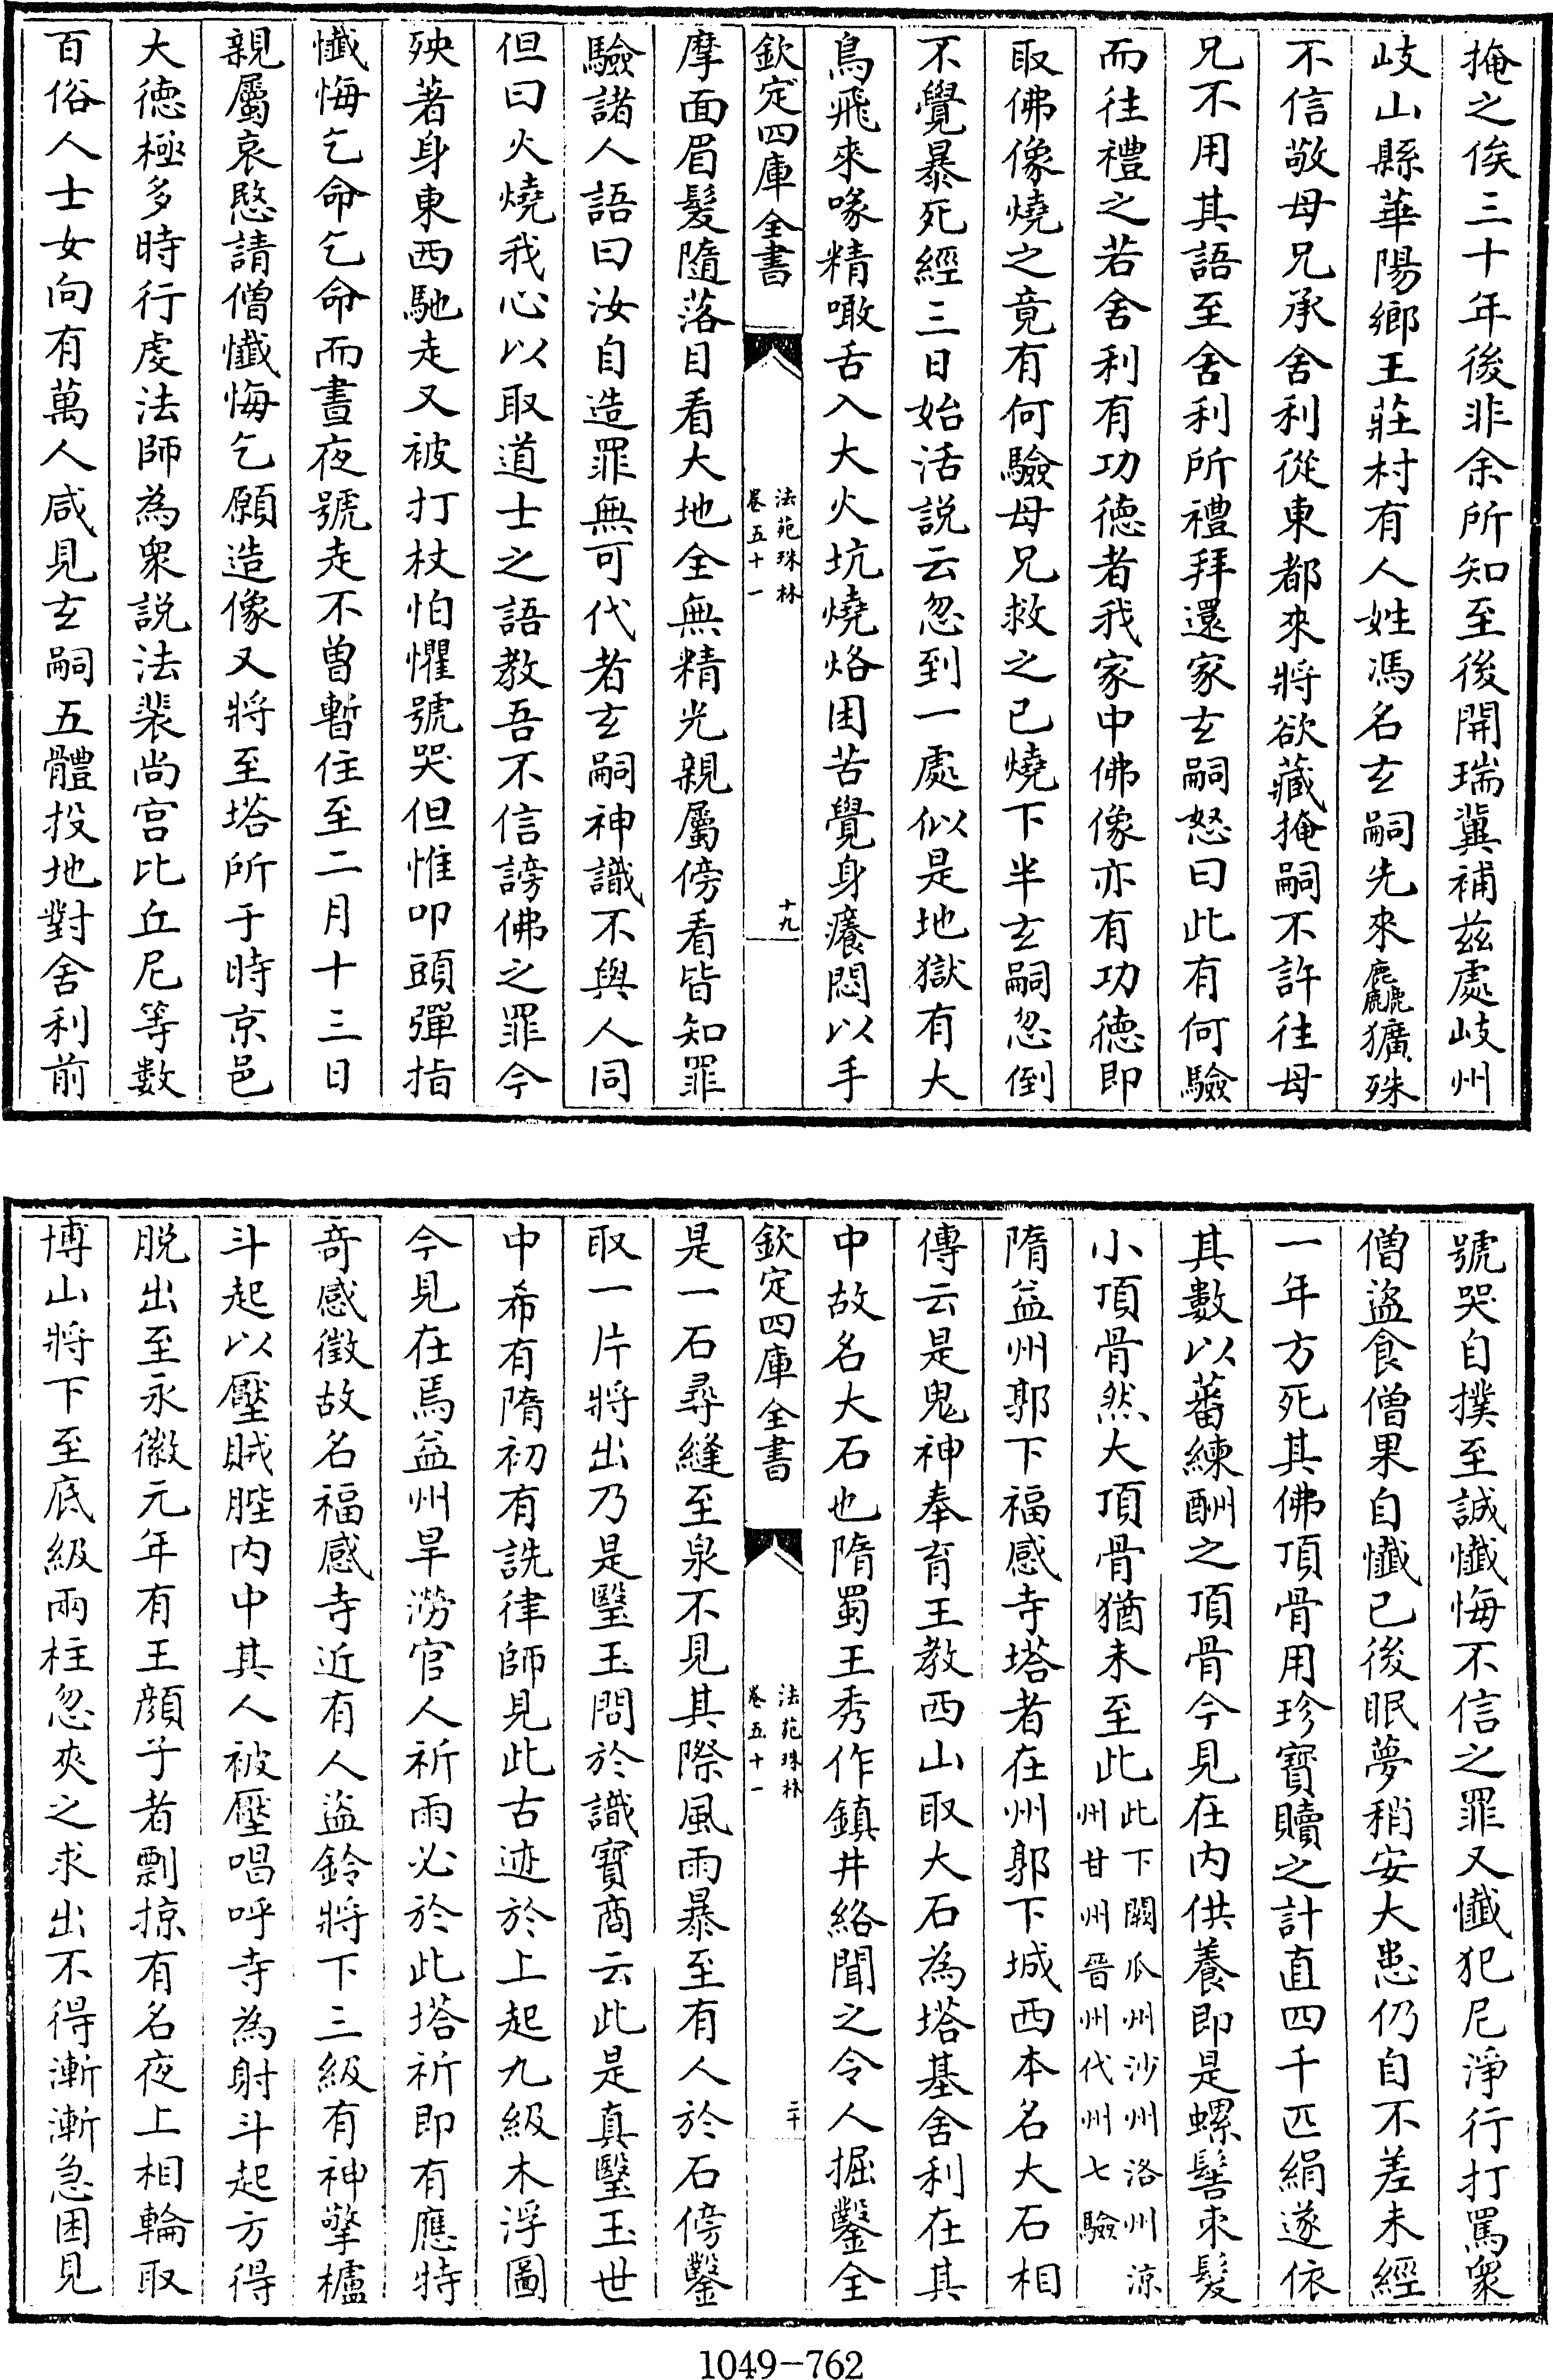 掩之俟三十年後非余所知至後開瑞冀補兹處岐州
岐山縣華陽鄉王莊村有人姓馮名玄嗣先來麤獷殊
不信敬母兄承舍利從東都來將欲藏掩嗣不許往母
兄不用其語至舍利所禮拜還家玄嗣怒曰此有何驗
而往禮之若舍利有功德者我家中佛像亦有功德即
取佛像燒之竟有何驗母兄救之已燒下半玄嗣忽倒
不覺暴死經三日始活說云忽到一處似是地獄有大
鳥飛來啄精噉舌入大火坑燒烙困苦覺身癢悶以手
欽定四庫全書
法苑珠林
卷五十一
十九
摩面眉髮隨落目看大地全無精光親屬傍看皆知罪
驗諸人語曰汝自造罪無可代者玄嗣神識不與人同
但曰火燒我心以取道士之語教吾不信謗佛之罪今
殃著身東西馳走又被打杖怕懼號哭但惟叩頭彈指
懺悔乞命乞命而晝夜號走不曾暫住至二月十三日
親屬哀愍請僧懺悔乞願造像又將至塔所于時京邑
大德極多時行虔法師為衆說法裴尚宫比丘尼等數
百俗人士女向有萬人咸見玄嗣五體投地對舍利前
號哭自撲至誠懺悔不信之罪又懺犯尼淨行打罵衆
僧盜食僧果自懺已後眠夢稍安大患仍自不差未經
一年方死其佛頂骨用珍寶贖之計直四千匹絹遂依
其數以蕃練酬之頂骨今見在内供養即是螺髻束髮
小頂骨然大頂骨猶未至此此下闕瓜州沙州洛州凉
州甘州晉州代州七驗
隋益州郭下福感寺塔者在州郭下城西本名大石相
傳云是鬼神奉育王教西山取大石為塔基舍利在其
中故名大石也隋蜀王秀作鎮井絡聞之令人掘鑿全
欽定四庫全書
法苑珠林
卷五十一
二十
是一石尋縫至泉不見其際風雨暴至有人於石傍鑿
取一片將出乃是瑿玉問於識寶商云此是真瑿玉世
中希有隋初有詵律師見此古迹於上起九級木浮圖
今見在焉益州旱澇官人祈雨必於此塔祈即有應特
奇感徵故名福感寺近有人盜鈴將下三級有神擎櫨
斗起以壓賊䏶内中其人被壓唱呼寺為射斗起方得
脫出至永徽元年有王顔子者剽掠有名夜上相輪取
博山將下至底級兩柱忽夾之求出不得漸漸急困見
1049-762